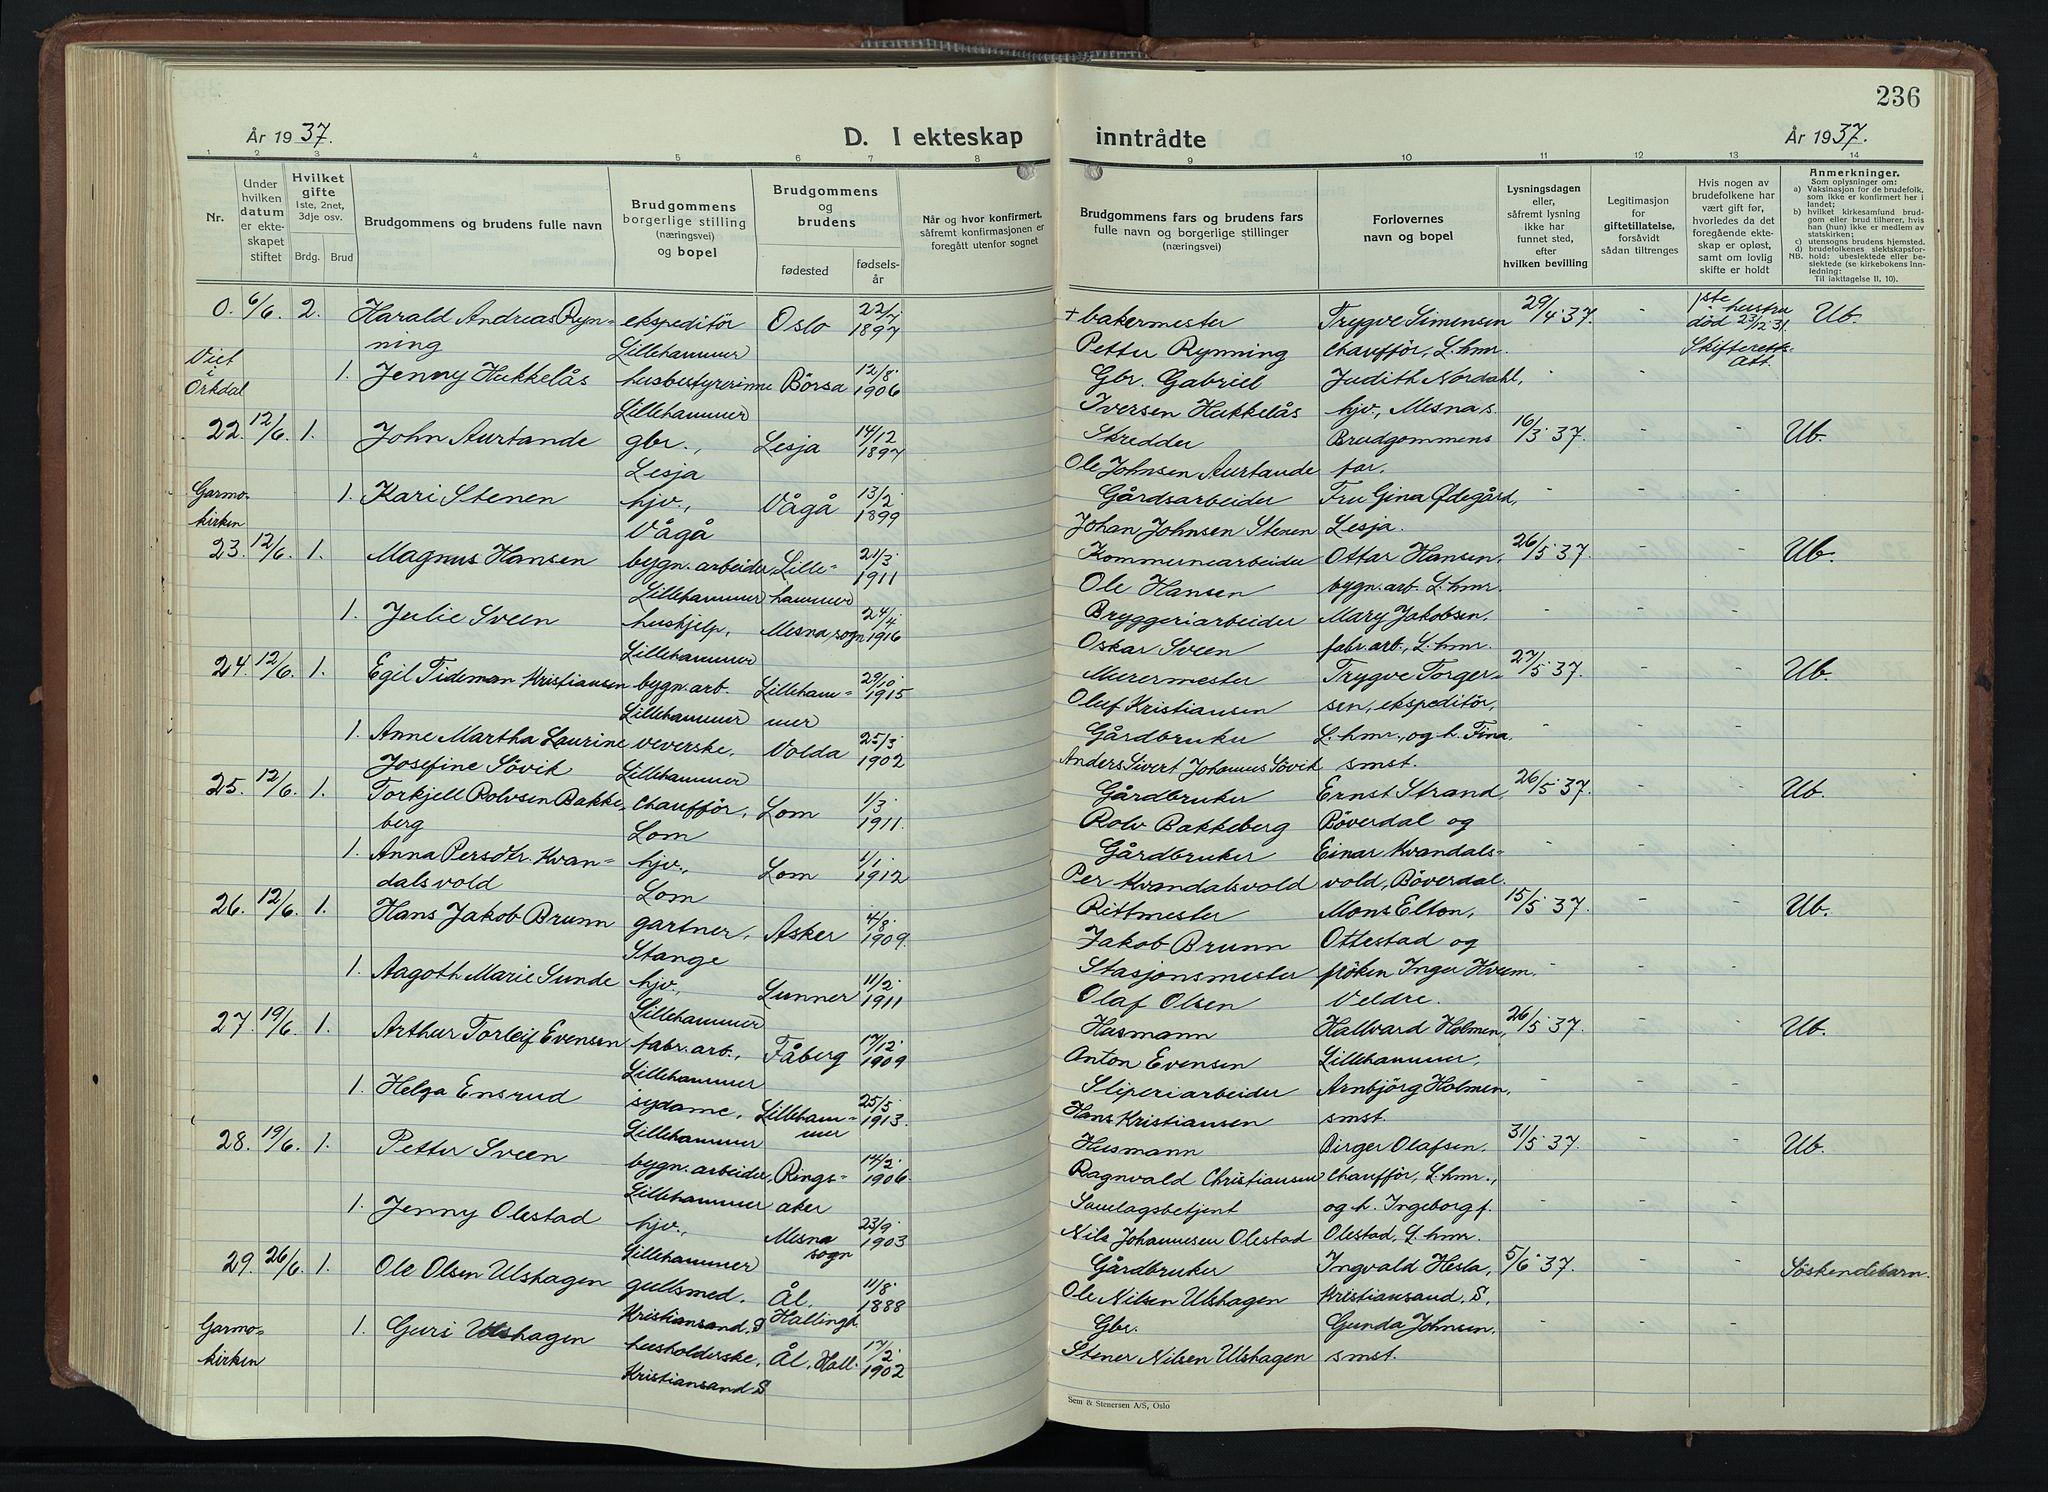 236
År 1937.
D. I ekteskap inntrådte
År 1937.
1 2 3 4 5 6 7 8 9 10 11 12 13 14
Nr.
Under hvilken datum er ekteskapet stiftet
Hvilket gifte
1ste, 2net, 3dje osv.
Brdg. Brud
Brudgommens og brudens fulle navn
Brudgommens borgerlige stilling (næringsvei) og bopel
Brudgommens og brudens
fødested
fødselsår
Når og hvor konfirmert, såfremt konfirmasjonen er foregått utenfor sognet
Brudgommens fars og brudens fars fulle navn og borgerlige stillinger (næringsvei)
Forlovernes navn og bopel
Lysningsdagen eller, såfremt lysning ikke har funnet sted, efter hvilken bevilling
Legitimasjon for giftetillatelse, forsåvidt sådan tiltrenges
Hvis nogen av brudefolkene har vært gift før, hvorledes da det foregående ekteskap er opløst, samt om lovlig skifte er holdt
Anmerkninger.
Som oplysninger om:
a) Vaksinasjon for de brudefolk, som ikke er konfirmert her i landet;
b) hvilket kirkesamfund brudgom eller brud tilhører, hvis han (hun) ikke er medlem av statskirken;
c) utensogns brudens hjemsted.
d) brudefolkenes slektskapsforhold: ubeslektede eller beslektede (se kirkebokens innledning:
NB. Til iakttagelse II, 10).
0. 6/6. 2. Harald Andreas Ryn- ekspeditör Oslo 22/7 1897 + bakermester Trygve Simensen 29/4 37. - 1ste hustru död 23/12 31. Ub.
ning Lillehammer Petter Rynning chauffför, L.hmr. Skifterettsatt.
Viet i Orkdal 1. Jenny Hukkelås husbestyrerinne Börsa 12/8 1906 Gbr. Gabriel Judith Nordahl,
Lillehammer Iversen Hukkelås hjv., Mesna s.
22. 12/6. 1. John Aurtande gbr., Lesja 14/12 1897 Skredder Brudgommens 16/3 37. - - Ub.
Lesja Ole Johnsen Aurtande far.
Garmokirken 1. Kari Stenen hjv., Vågå 13/2 1899 Gårdsarbeider Fru Gina Ødegård, - - -
Vågå Johan Johnsen Stenen Lesja.
23. 12/6. 1. Magnus Hansen bygn.arbeider, Lille- 21/3 1911 Kommunearbeider Ottar Hansen, 26/5 37. - - Ub.
Lillehammer hammer Ole Hansen bygn.arb. L.hmr.
1. Julie Sveen huskjelp, Mesna sogn 24/4 1916 Bryggeriarbeider Mary Jakobsen, - - -
Lillehammer Oskar Sveen fabr.arb., L.hmr.
24. 12/6. 1. Egil Tideman Kristiansen bygn.arb. Lilleham- 29/10 1915 Murermester Trygve Torger- 27/5 37. - - Ub.
Lillehammer mer Oluf Kristiansen sen, ekspeditör,
1. Anne Martha Laurine veverske, Volda 25/3 1902 Gårdbruker L.hmr., og h. Fina, - - -
Josefine Sövik Lillehammer Anders Sivert Johannes Sövik smst.
25. 12/6. 1. Torkjell Rolvsen Bakke- Chaufför, Lom 1/3 1911. Gårdbruker Ernst Strand, 26/5 37. - - Ub.
berg Lom Rolv Bakkeberg Böverdal og
1. Anna Persdtr. Kvan- hjv., Lom 1/1 1912 Gårdbruker Einar Kvandals- - -
dalsvold Lom Per Kvandalsvold vold, Böverdal.
26. 12/6. 1. Hans Jakob Brunn gartner, Asker 4/8 1909. Rittmester Mons Elton, 15/5 37. - - Ub.
Stange Jakob Brunn Ottestad og
1. Aagoth Marie Sunde hjv., Lunner 11/2 1911 Stasjonsmester fröken Inger Hvem - - -
Lillehammer Olaf Olsen Veldre.
27. 19/6. 1. Arthur Torleif Evensen fabr.arb., Fåberg 17/12 1909 Husmann Hallvard Holmen, 26/5 37. - - Ub.
Lillehammer Anton Evensen Lillehammer,
1. Helga Ensrud sydame, Lilleham- 25/5 1913. Sliperiarbeider Arnbjörg Holmen, - - -
Lillehammer mer Hans Kristiansen smst.
28. 19/6. 1. Petter Sveen bygn.arbeider, Rings- 14/2 1906. Husmann Birger Olafsen, 31/5 37. - - Ub.
Lillehammer aker Ragnvald Christiansen chaufför, L.hmr.,
1. Jenny Olestad hjv., Mesna sogn 23/9 1903 Samlagsbetjent og h. Ingeborg f. - - -
Lillehammer Nils Johannesen Olestad Olestad, L.hmr.
29. 26/6. 1. Ole Olsen Ulshagen gullsmed, Ål, 11/8 1888 Gårdbruker Ingvald Hesla, 5/6 37. - - Söskendebarn.
Kristiansand S. Hallingd. Ole Nilsen Ulshagen Kristiansand. S.
Garmokirken 1. Guri Ulshagen husholderske, Ål, Hall. 17/2 1902 Gbr. Gunda Johnsen,
Kristiansand S. Stener Nilsen Ulshagen smst.
Sem & Stenersen A/S, Oslo